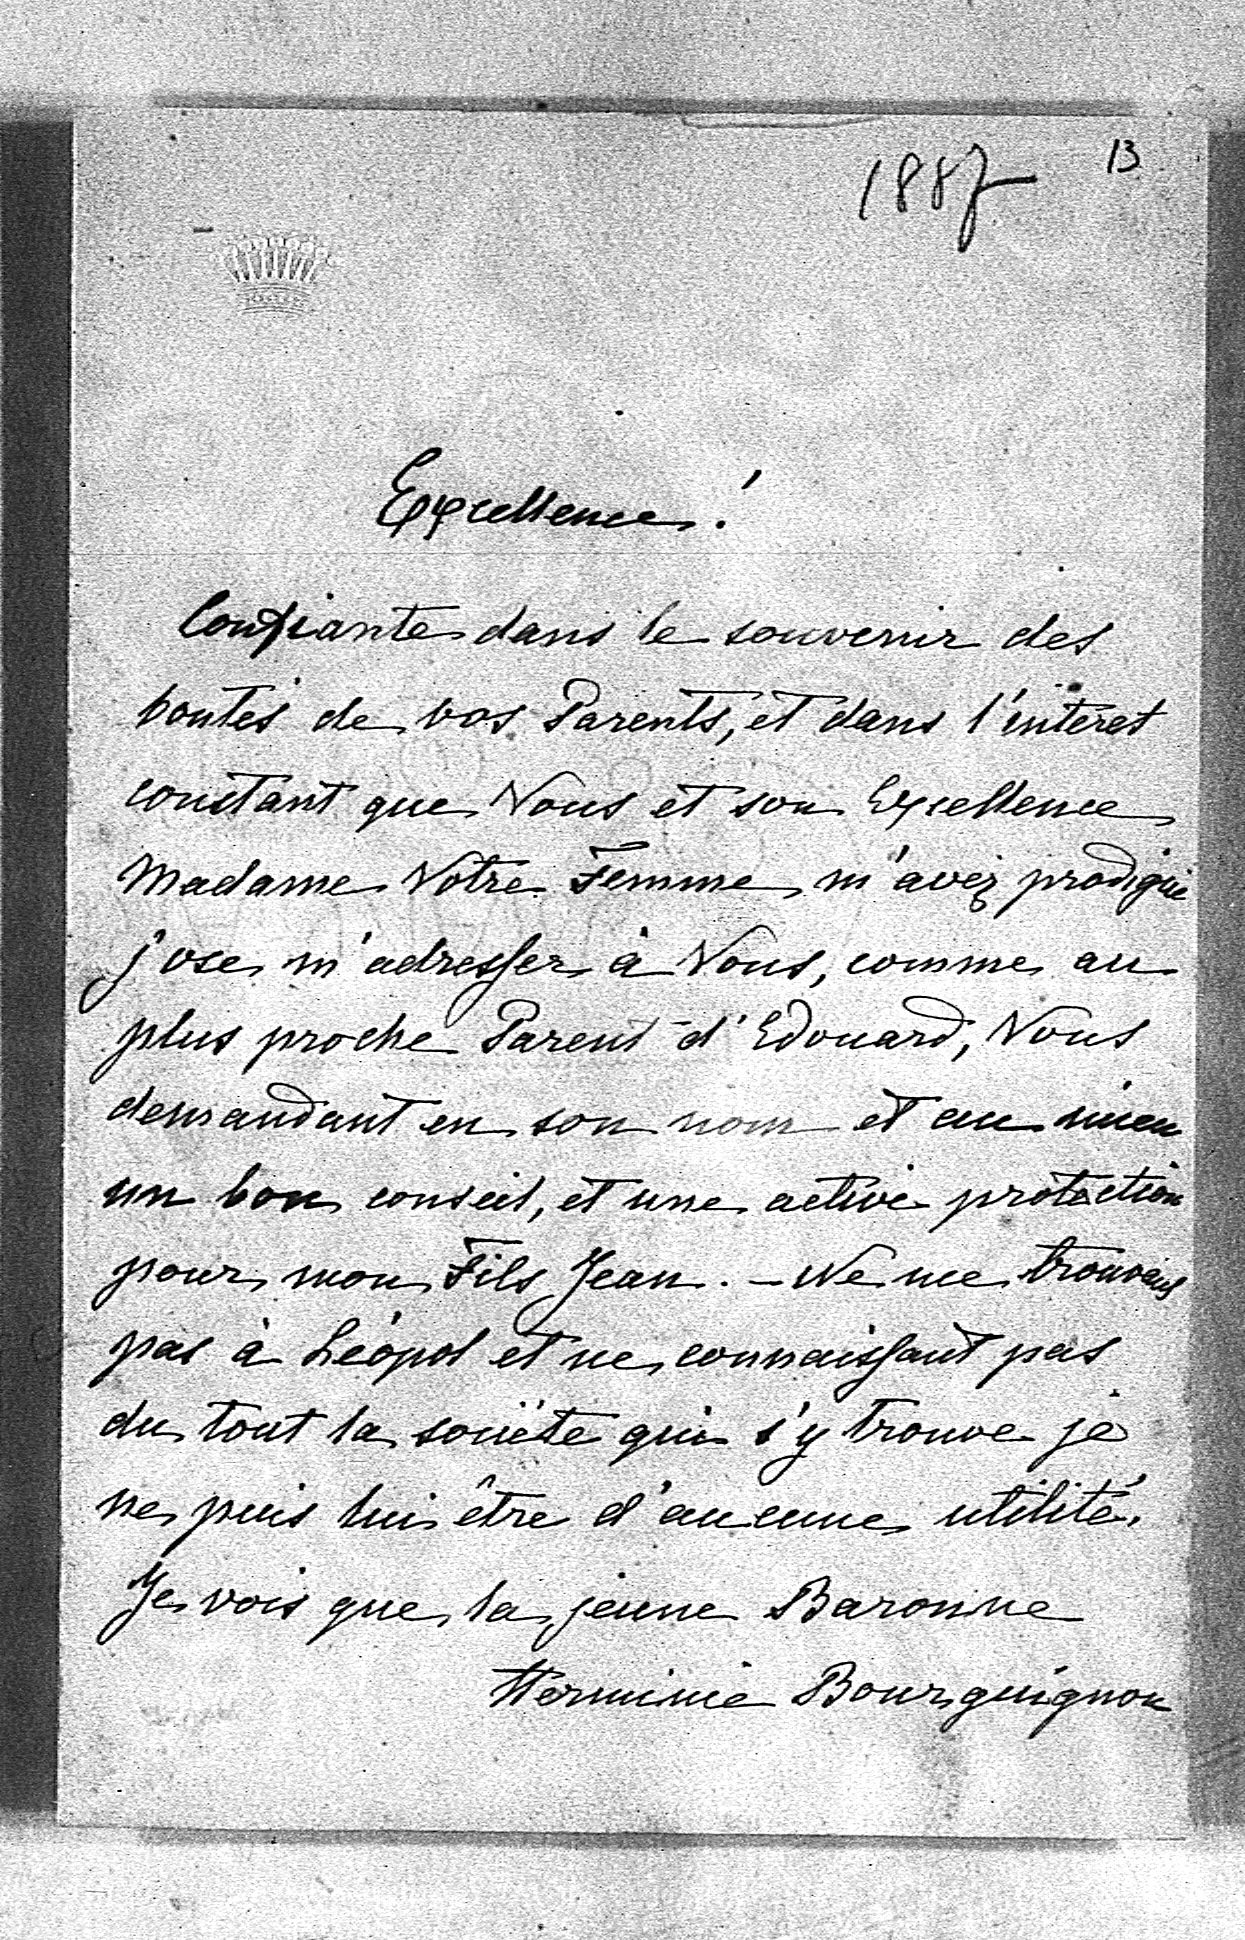 13
1887
Excellence!
Confiante dans le souvenir des
bontés de vos Parents, et dans l'intéret
constant que Vous et son Excellence
Madame Votre Femme m'avez prodigué
j'ose m'adresser à Vous, comme au
plus proche Parent d'Edouard, Vous
demandant en son nom et au mien
un bon conseil, et une active protection
pour mon Fils Jean. – Ne me trouvant
pas à Léopol et ne connaissant pas
du tout la société qui s'y trouve je
ne puis lui être d'aucune utilité.
Je vois que la jeune Baronne
Herminie Bourguignon